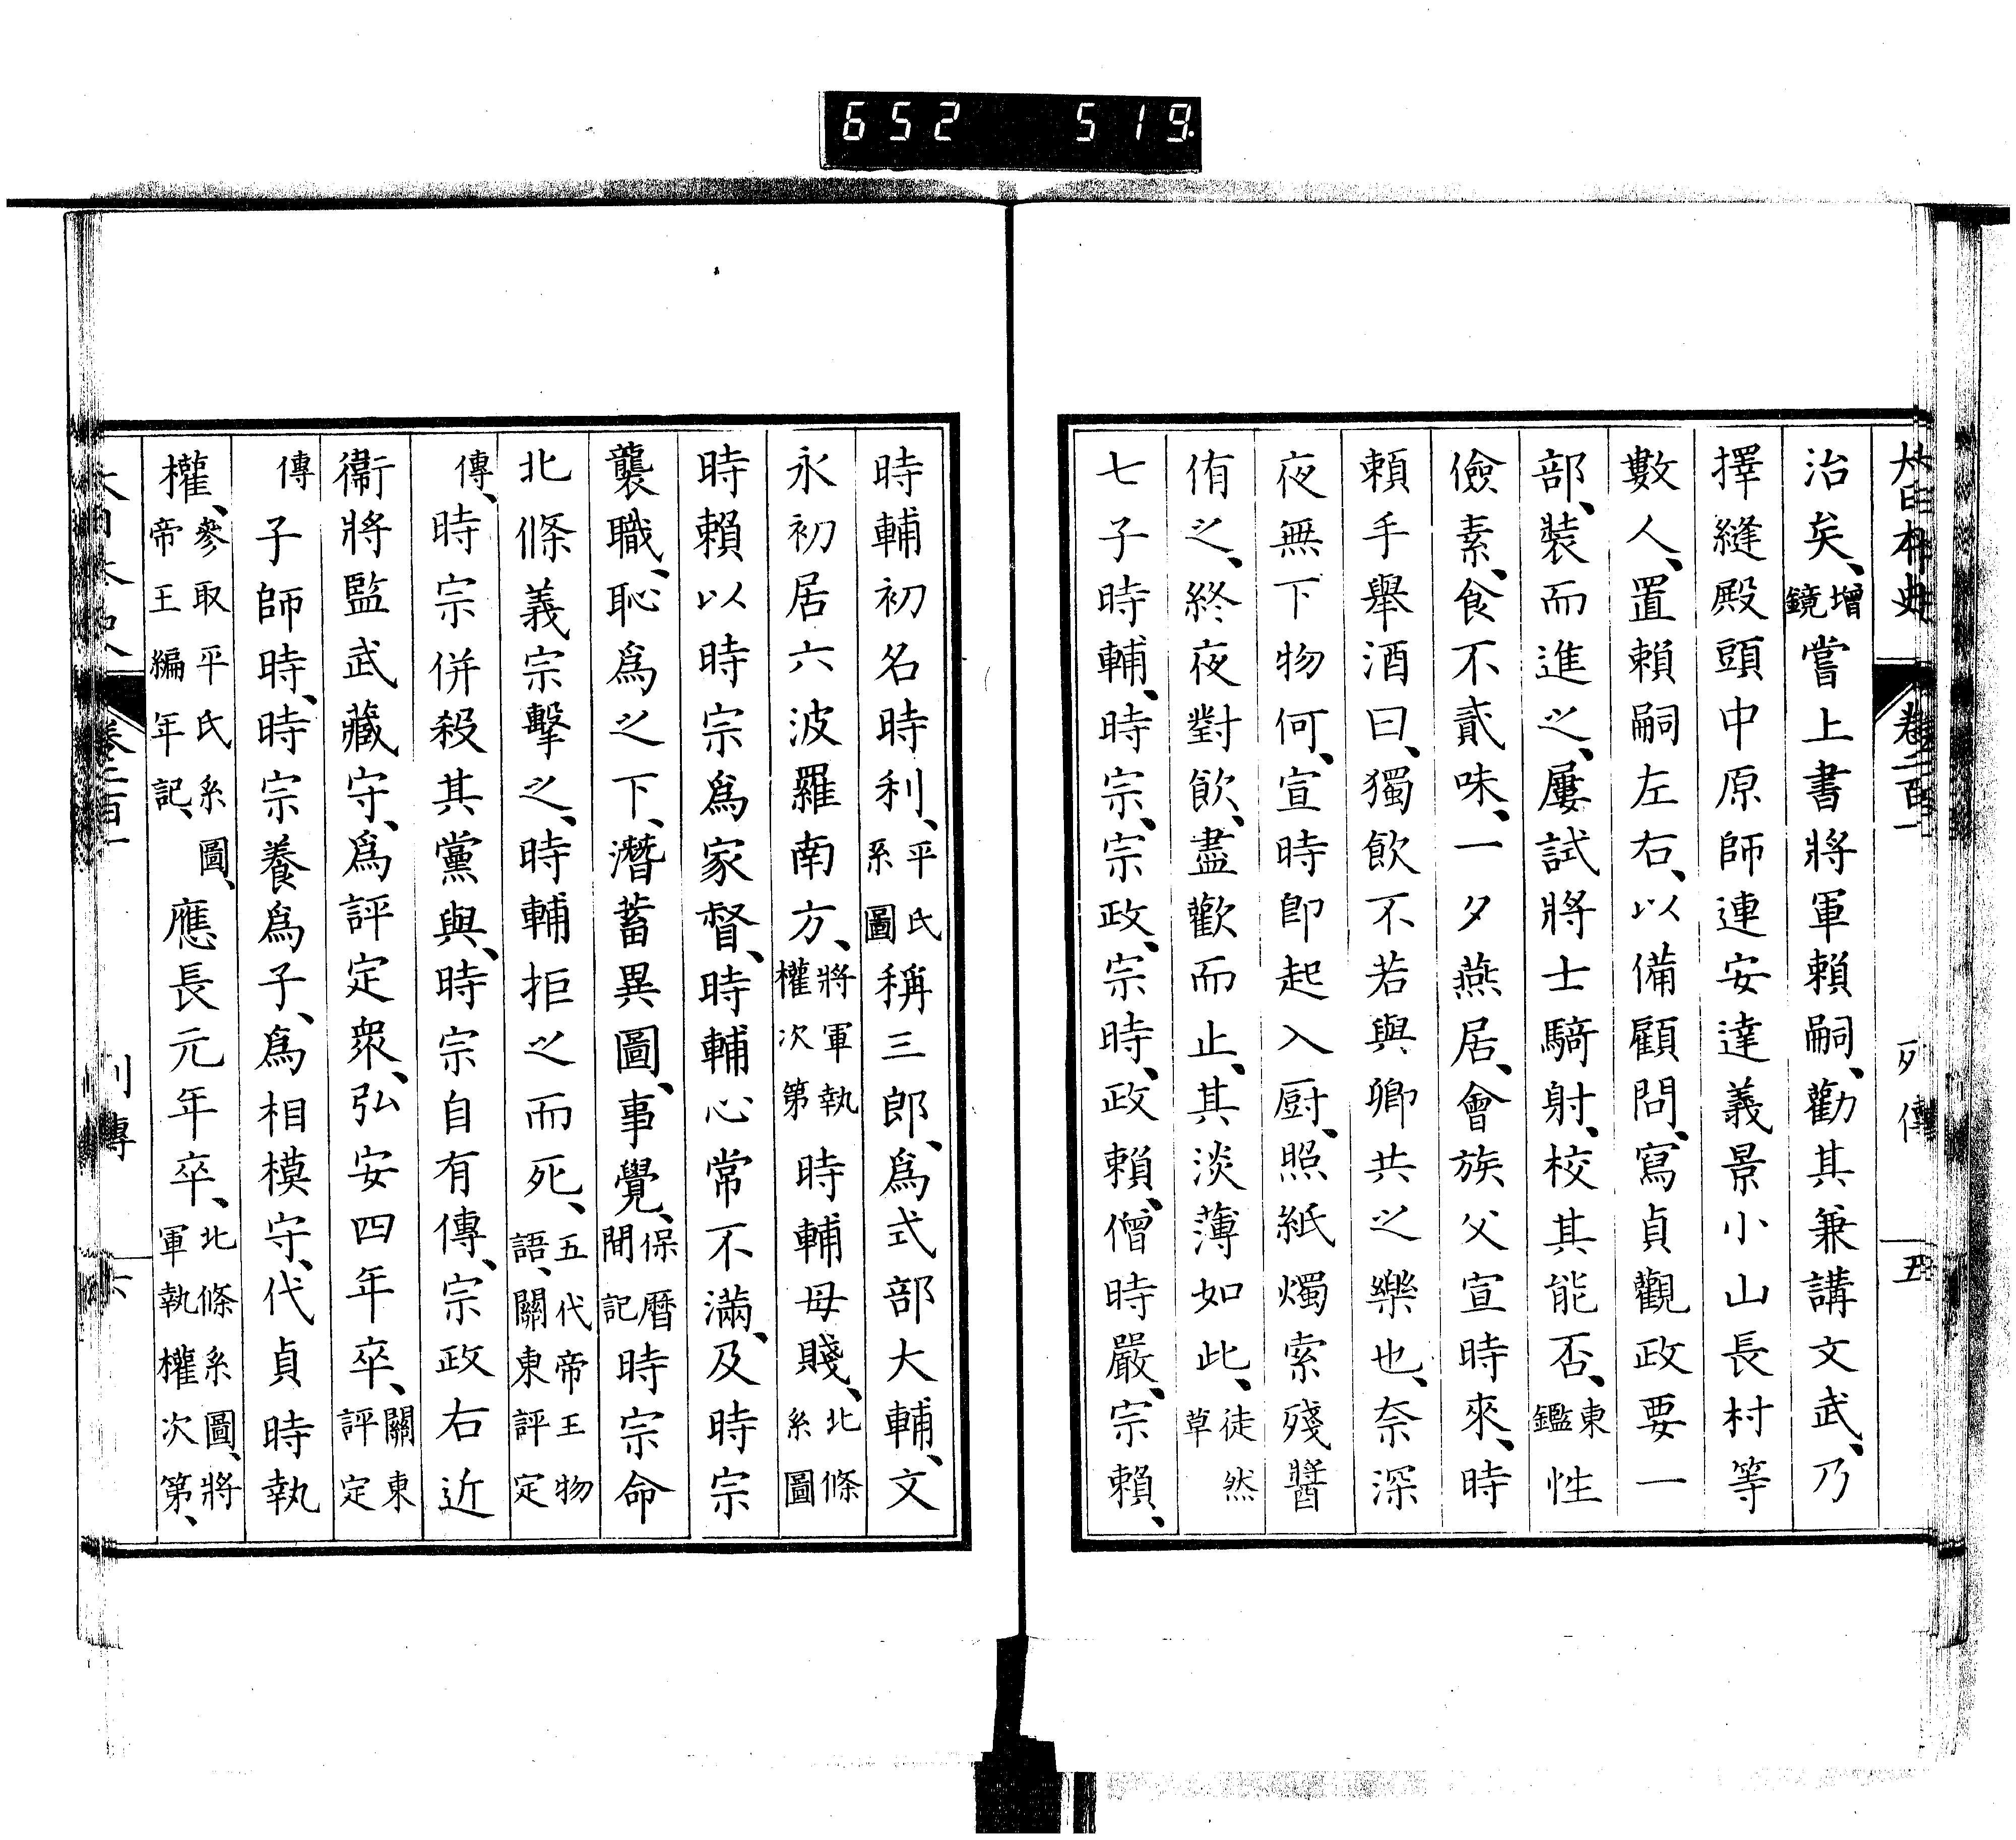 652 519
大日本史 卷二百一 列傳 五
治矣、增鏡嘗上書將軍賴嗣、勸其兼講文武、乃
擇縫殿頭中原師連安達義景小山長村等
數人、置賴嗣左右、以備顧問、寫貞觀政要一
部、裝而進之、屢試將士騎射、校其能否、東鑑性
儉素、食不貳味、一夕燕居、會族父宣時來、時
賴手舉酒曰、獨飮不若與卿共之樂也、奈深
夜無下物何、宣時卽起入厨、照紙燭索殘醬
侑之、終夜對飮、盡歡而止、其淡薄如此、徒然草
七子時輔、時宗、宗政、宗時、政賴、僧時嚴、宗賴、
時輔初名時利、平氏系圖稱三郎、爲式部大輔、文
永初居六波羅南方、將軍執權次第時輔母賤、北條系圖
時賴以時宗爲家督、時輔心常不滿、及時宗
襲職、恥爲之下、潛蓄異圖、事覺、保曆間記時宗命
北條義宗擊之、時輔拒之而死、五代帝王物語、關東評定
傳、時宗併殺其黨與、時宗自有傳、宗政右近
衞將監武藏守、爲評定衆、弘安四年卒、關東評定
傳子師時、時宗養爲子、爲相模守、代貞時執
權、參取平氏系圖、帝王編年記、應長元年卒、北條系圖、將軍執權次第、
大日本史 卷二百一 列傳 六